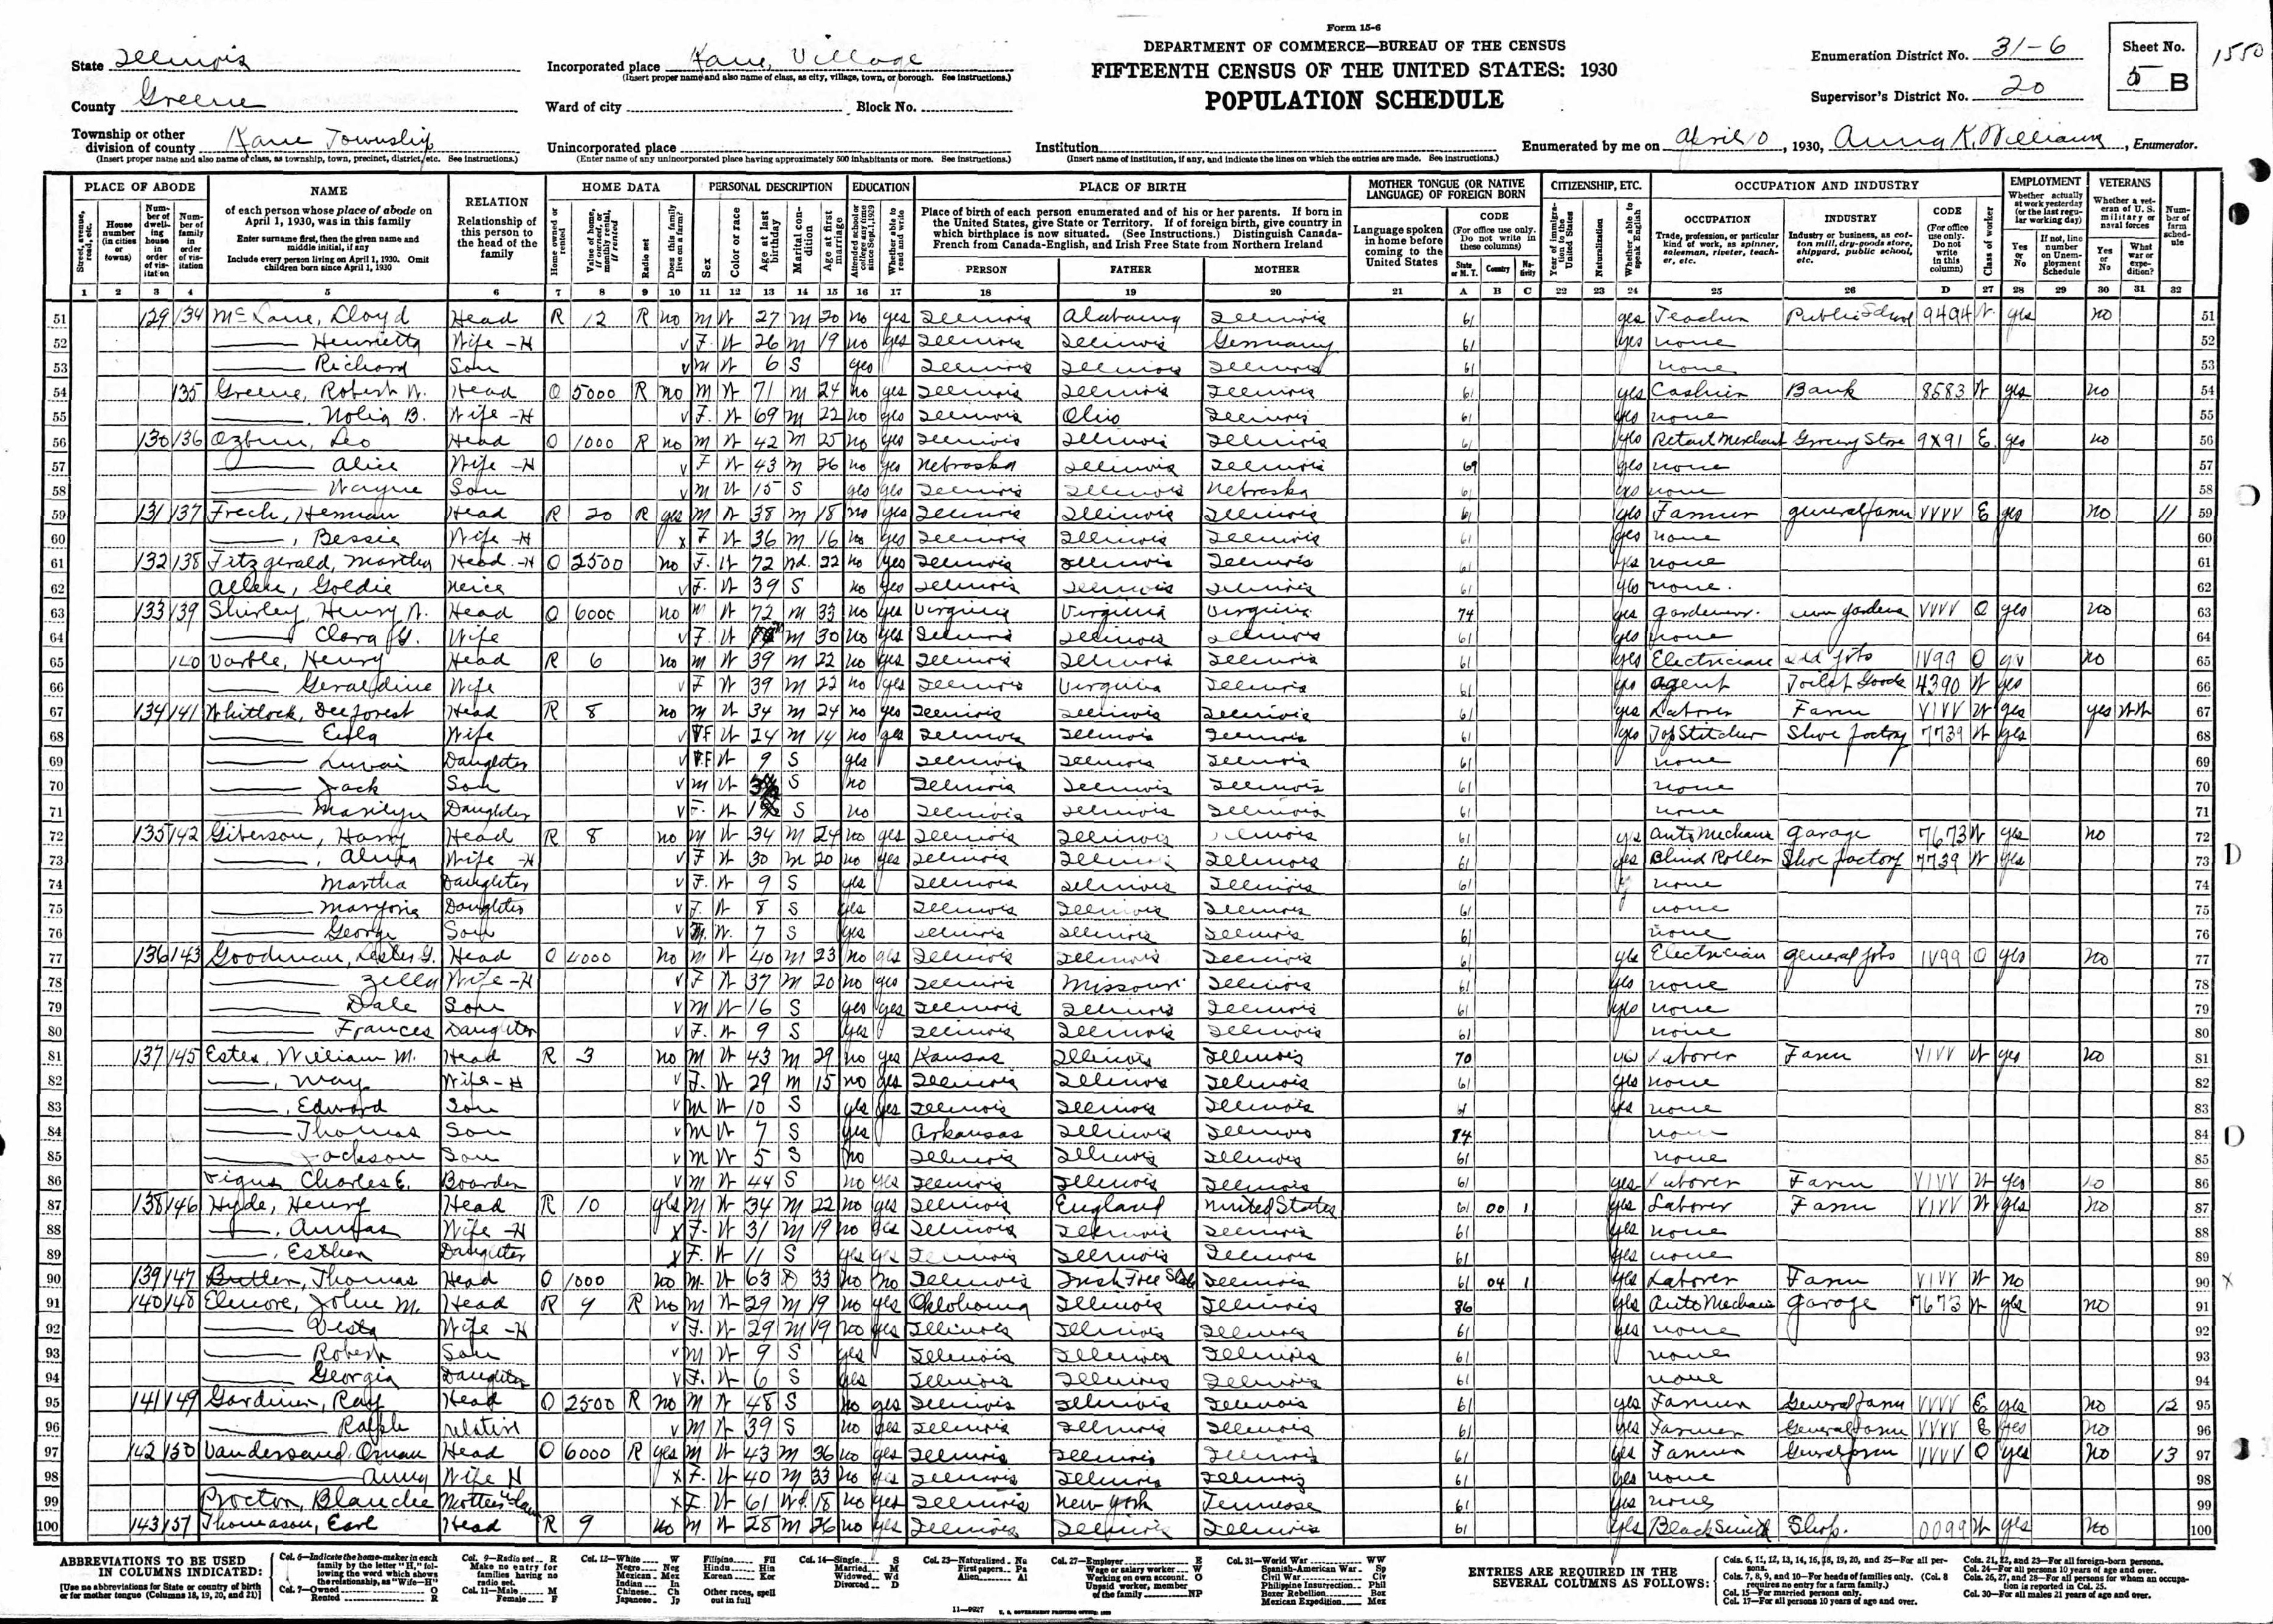 Form 15-6
DEPARTMENT OF COMMERCE—BUREAU OF THE CENSUS
FIFTEENTH CENSUS OF THE UNITED STATES: 1930
POPULATION SCHEDULE
State Illinois
County Greene
Township or other division of county Kane Township
(Insert proper name and also name of class, as township, town, precinct, district, etc. See instructions.)
Incorporated place Kane, Village
(Insert proper name and also name of class, as city, village, town, or borough. See instructions.)
Ward of city Block No.
Unincorporated place
(Enter name of any unincorporated place having approximately 500 inhabitants or more. See instructions.)
Institution
(Insert name of institution, if any, and indicate the lines on which the entries are made. See instructions.)
Enumeration District No. 31-6
Supervisor's District No. 20
Sheet No. 5 B
1550
Enumerated by me on April 10, 1930, Anna K. Williams, Enumerator.
PLACE OF ABODE NAME RELATION HOME DATA PERSONAL DESCRIPTION EDUCATION PLACE OF BIRTH MOTHER TONGUE (OR NATIVE LANGUAGE) OF FOREIGN BORN CITIZENSHIP, ETC. OCCUPATION AND INDUSTRY EMPLOYMENT VETERANS
1 2 3 4 5 6 7 8 9 10 11 12 13 14 15 16 17 18 19 20 21 A B C 22 23 24 25 26 D 27 28 29 30 31 32
51 129 134 McLane, Lloyd Head R 12 R no M W 27 M 20 no yes Illinois Alabama Illinois 61 yes Teacher Public School 9494 W yes no 51
52 Henrietta Wife-H v F W 26 M 19 no yes Illinois Illinois Germany 61 yes none 52
53 Richard Son v M W 6 S yes Illinois Illinois Illinois 61 none 53
54 135 Greene, Robert W. Head O 5000 R no M W 71 M 24 no yes Illinois Illinois Illinois 61 yes Cashier Bank 8583 W yes no 54
55 B. Wife-H v F W 69 M 22 no yes Illinois Ohio Illinois 61 yes none 55
56 130 136 Ozbun, Leo Head O 1000 R no M W 42 M 25 no yes Illinois Illinois Illinois 61 yes Retail Merchant Grocery Store 9X91 E yes no 56
57 Alice Wife-H v F W 43 M 26 no yes Nebraska Illinois Illinois 69 yes none 57
58 Wayne Son v M W 15 S yes yes Illinois Illinois Nebraska 61 yes none 58
59 131 137 Frech, Herman Head R 20 R yes M W 38 M 18 no yes Illinois Illinois Illinois 61 yes Farmer general farm VVVV E yes no 11 59
60 , Bessie Wife-H x F W 36 M 16 no yes Illinois Illinois Illinois 61 yes none 60
61 132 138 Fitzgerald, Martha Head-H O 2500 no F W 72 Wd. 22 no yes Illinois Illinois Illinois 61 yes none 61
62 Allen, Goldie Neice v F W 39 S no yes Illinois Illinois Illinois 61 yes none. 62
63 133 139 Shirley, Henry W. Head O 6000 no M W 72 M 33 no yes Virginia Virginia Virginia 74 yes gardener. own gardens VVVV O yes no 63
64 Clara G. Wife v F W M 30 no yes Illinois Illinois Illinois 61 yes none 64
65 140 Varble, Henry Head R 6 no M W 39 M 22 no yes Illinois Illinois Illinois 61 yes Electrician odd jobs 1V99 O yes no 65
66 Geraldine Wife v F W 39 M 22 no yes Illinois Virginia Illinois 61 yes agent Toilet Goods 4390 W yes 66
67 134 141 Whitlock, Deeforest Head R 8 no M W 34 M 24 no yes Illinois Illinois Illinois 61 yes Laborer Farm VIVV W yes yes WW 67
68 Eula Wife v F W 24 M 14 no yes Illinois Illinois Illinois 61 yes Top Stitcher Shoe factory 7739 W yes 68
69 Daughter v F W 9 S yes Illinois Illinois Illinois 61 none 69
70 Jack Son v M W S no Illinois Illinois Illinois 61 none 70
71 Marilyn Daughter v F W S no Illinois Illinois Illinois 61 none 71
72 135 142 Giberson, Harry Head R 8 no M W 34 M 24 no yes Illinois Illinois Illinois 61 yes Auto Mechanic garage 7673 W yes no 72
73 , Alma Wife-H v F W 30 M 20 no yes Illinois Illinois Illinois 61 yes Blind Roller Shoe factory 7739 W yes 73
74 Martha Daughter v F W 9 S yes Illinois Illinois Illinois 61 none 74
75 Marjorie Daughter v F W 8 S yes Illinois Illinois Illinois 61 none 75
76 George Son v M W 7 S yes Illinois Illinois Illinois 61 none 76
77 136 143 Goodman, Lester G. Head O 4000 no M W 40 M 23 no yes Illinois Illinois Illinois 61 yes Electrician general jobs 1V99 O yes no 77
78 Zella Wife-H v F W 37 M 20 no yes Illinois Missouri Illinois 61 yes none 78
79 Dale Son v M W 16 S yes yes Illinois Illinois Illinois 61 yes none 79
80 Frances Daughter v F W 9 S yes Illinois Illinois Illinois 61 none 80
81 137 145 Estes, William M. Head R 3 no M W 43 M 29 no yes Kansas Illinois Illinois 70 yes Laborer Farm VIVV W yes no 81
82 , May Wife-H v F W 29 M 15 no yes Illinois Illinois Illinois 61 yes none 82
83 , Edward Son v M W 10 S yes yes Illinois Illinois Illinois 61 yes none 83
84 Thomas Son v M W 7 S yes Arkansas Illinois Illinois 84 none 84
85 Jackson Son v M W 5 S no Illinois Illinois Illinois 61 none 85
86 Vigus Charles E. Boarder v M W 44 S no yes Illinois Illinois Illinois 61 yes Laborer Farm VIVV W yes no 86
87 138 146 Hyde, Henry Head R 10 yes M W 34 M 22 no yes Illinois England United States 61 00 1 yes Laborer Farm VIVV W yes no 87
88 Wife-H x F W 31 M 19 no yes Illinois Illinois Illinois 61 yes none 88
89 , Esther Daughter x F W 11 S yes yes Illinois Illinois Illinois 61 yes none 89
90 139 147 Butler, Thomas Head O 1000 no M W 63 D 33 no no Illinois Irish Free State Illinois 61 04 1 yes Laborer Farm VIVV W no 90 x
91 140 148 Elmore, John M. Head R 9 R no M W 29 M 19 no yes Oklahoma Illinois Illinois 86 yes Auto Mechanic garage 7673 W yes no 91
92 Vesta Wife-H v F W 29 M 19 no yes Illinois Illinois Illinois 61 yes none 92
93 Robert Son v M W 9 S yes Illinois Illinois Illinois 61 none 93
94 Georgia Daughter v F W 6 S yes Illinois Illinois Illinois 61 none 94
95 141 149 Gardiner, Ray Head O 2500 R no M W 48 S no yes Illinois Illinois Illinois 61 yes Farmer General farm VVVV E yes no 12 95
96 Ralph relative v M W 39 S no yes Illinois Illinois Illinois 61 yes Farmer General farm VVVV E yes no 96
97 142 150 Vandersand, Orman Head O 6000 R yes M W 43 M 36 no yes Illinois Illinois Illinois 61 yes Farmer General farm VVVV O yes no 13 97
98 Anna Wife H x F W 40 M 33 no yes Illinois Illinois Illinois 61 yes none 98
99 Procton, Blanche Mother in law x F W 61 Wd. 18 no yes Illinois New York Tennesse 61 yes none 99
100 143 151 Thomason, Earl Head R 9 no M W 28 M 26 no yes Illinois Illinois Illinois 61 yes BlackSmith Shop. 0099 W yes no 100
ABBREVIATIONS TO BE USED IN COLUMNS INDICATED:
[Use no abbreviations for State or country of birth or for mother tongue (Columns 18, 19, 20, and 21)]
ENTRIES ARE REQUIRED IN THE SEVERAL COLUMNS AS FOLLOWS:
11—9627 U. S. GOVERNMENT PRINTING OFFICE: 1930